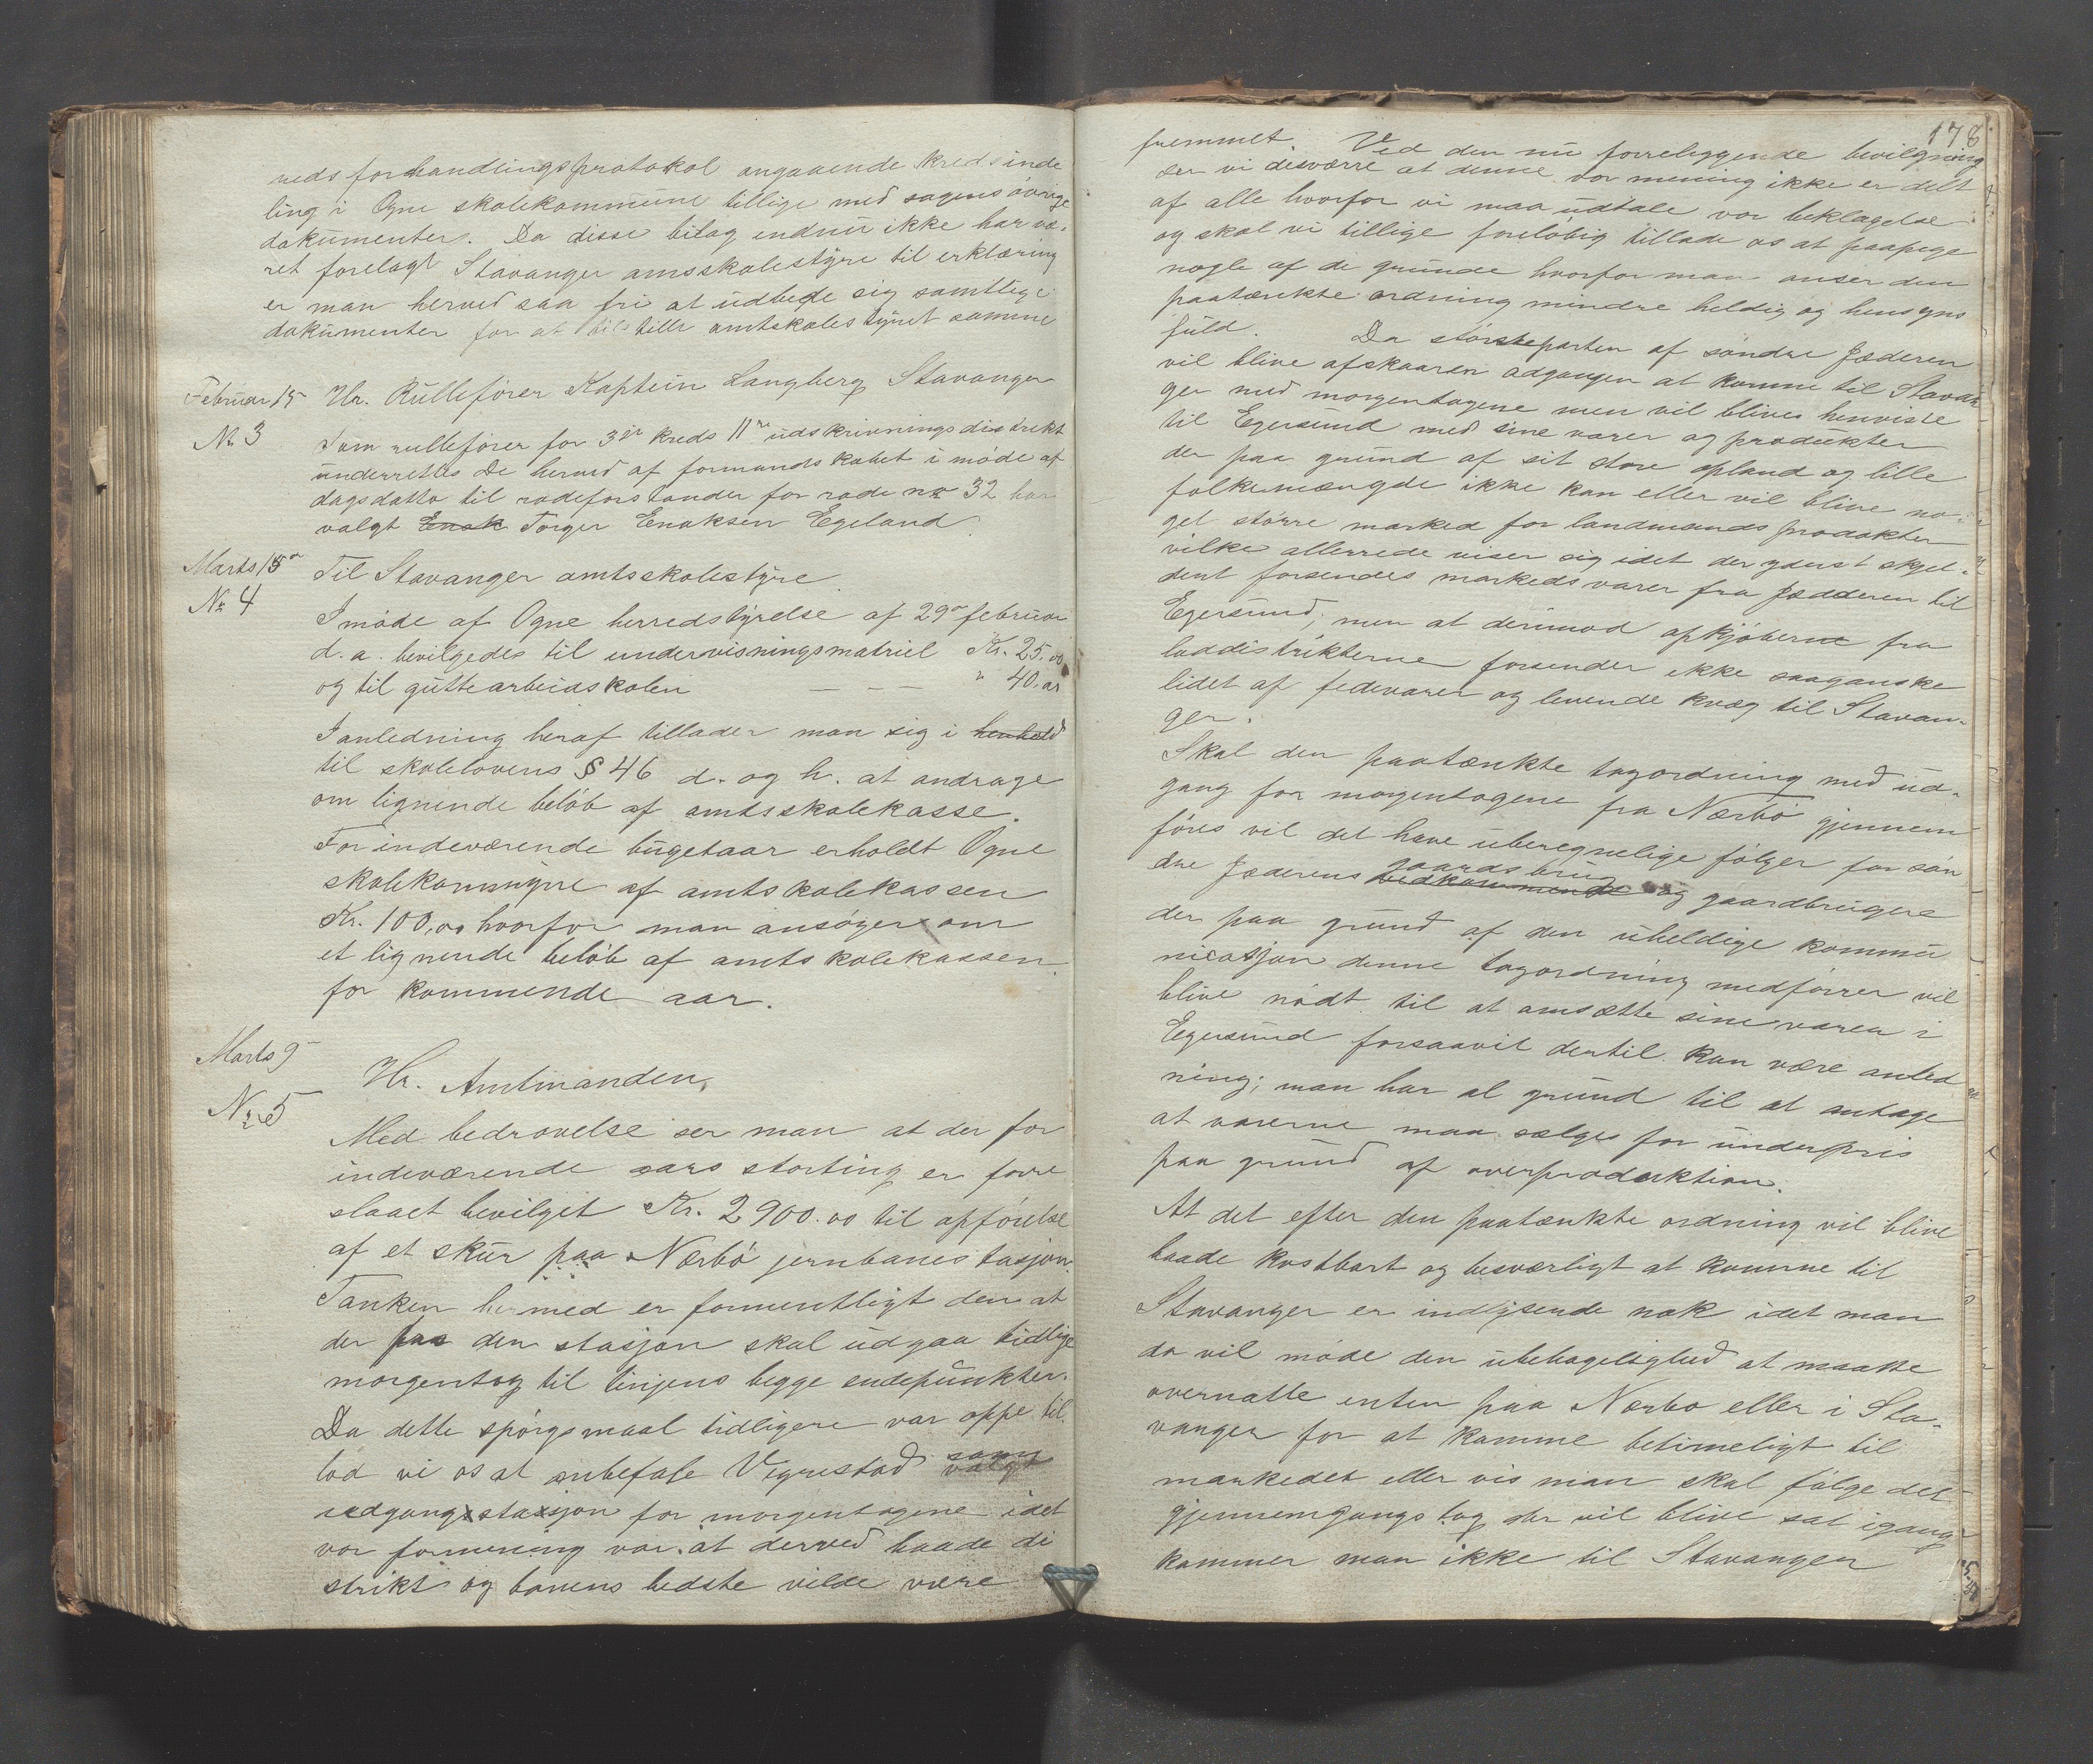 reds forhandlingsprotokol angaaende kredsinde
ling i Ogne skolekommune tillige med sagens øvrige
dokumenter. Da disse bilag endnu ikke har væ-
ret forelagt Stavanger amsskolestyre til erklæring
er man herved saa fri at udbede sig samtlige
dokumenter for at tilstille amtskolestyret samme
Februar 15 Hr. Rullefører Kaptein Langberg Stavanger
Nr 3 Som rullefører for 3die kreds 11te udskrivningsdistrikt
underrettes De herved af formandskabet i møde af
dagsdatto til rodeforstander for rode no 32 har
valgt Enok Torger Enoksen Egeland
Marts 15de Til Stavanger amtsskolestyre
Nr 4
I møde af Ogne herredstyrelse af 29de februar
d.a. bevilgedes til undervisningsmatriel Kr. 25.00
og til guttearbeidskolen — — — " 40.00
I anledning heraf tillader man sig i henhold
til skolelovens § 46 d. og h. at andrage
om lignende beløb af amtsskolekasse.
For indeværende bugetaar erholdt Ogne
skolekommune af amtskolekassen
Kr. 100,00 hvorfor man ansøger om
et lignende beløb af amtskolekassen
for kommende aar.
Marts 9
Hr. Amtmanden,
Nr 5
Med bedrøvelse ser man at der for
indeværende aars storting er fore
slaaet bevilget Kr. 2900.00 til opførelse
af et skur paa Nærbø jernbanestasjon.
Tanken hermed er formentligt den at
der fra den stasjon skal udgaa tidlige
morgentog til linjens begge endepunkter.
Da dette spørgsmaal tidligere var oppe til
lod vi os at anbefale Vigrestad som valgt
udgangsstasjon for morgentogene idet
vor formening var at derved baade di
strikt og banens bedste vilde være
178
fremmet. Ved den nu forreliggende bevilgning
ser vi desværre at denne vor mening ikke er delt
af alle hvorfor vi maa udtale vor beklagelse
og skal vi tillige foreløbig tillade os at paapege
nogle af de grunde hvorfor man anser den
paatænkte ordning mindre heldig og hensyns
fuld. Da størsteparten af søndre Jæderen
vil blive afskaaren adgangen at komme til Stavan
ger med morgentogene men vil blive henviste
til Egersund med sine varer og produkter
der paa grund af sit store opland og lille
folkemængde ikke kan eller vil blive no-
get større marked for landmands produkter
vilke allerrede viser sig idet der yderst skjel-
dent forsendes markedsvarer fra Jædderen til
Egersund, men at derimod opkjøberne fra
loddistrikterne forsender ikke saaganske
lidet af fedevarer og levende kvæg til Stavan-
ger.
Skal den paatænkte togordning med ud-
gang for morgentogene fra Nærbø gjennem
føres vil det have uberegnelige følger for søn
dre Jæderens vedkommende gaardsbrug og gaardbrugere
der paa grund af den uheldige kommu
nicasjon denne togordning medførrer vil
blive nødt til at omsætte sine varer i
Egersund forsaavit dertil kan være anled
ning; man har al grund til at antage
at varerne maa sælges for underpris
paa grund af overproduktion.
At det efter den paatænkte ordning vil blive
baade kostbart og besværligt at komme til
Stavanger er indlysende nok idet man
da vil møde den ubehagelighed at maatte
overnatte enten paa Nærbo eller i Sta-
vanger for at komme betimeligt til
markedet eller vis man skal følge det
gjennemgangstog der vil blive sat igang
kommer man ikke til Stavanger